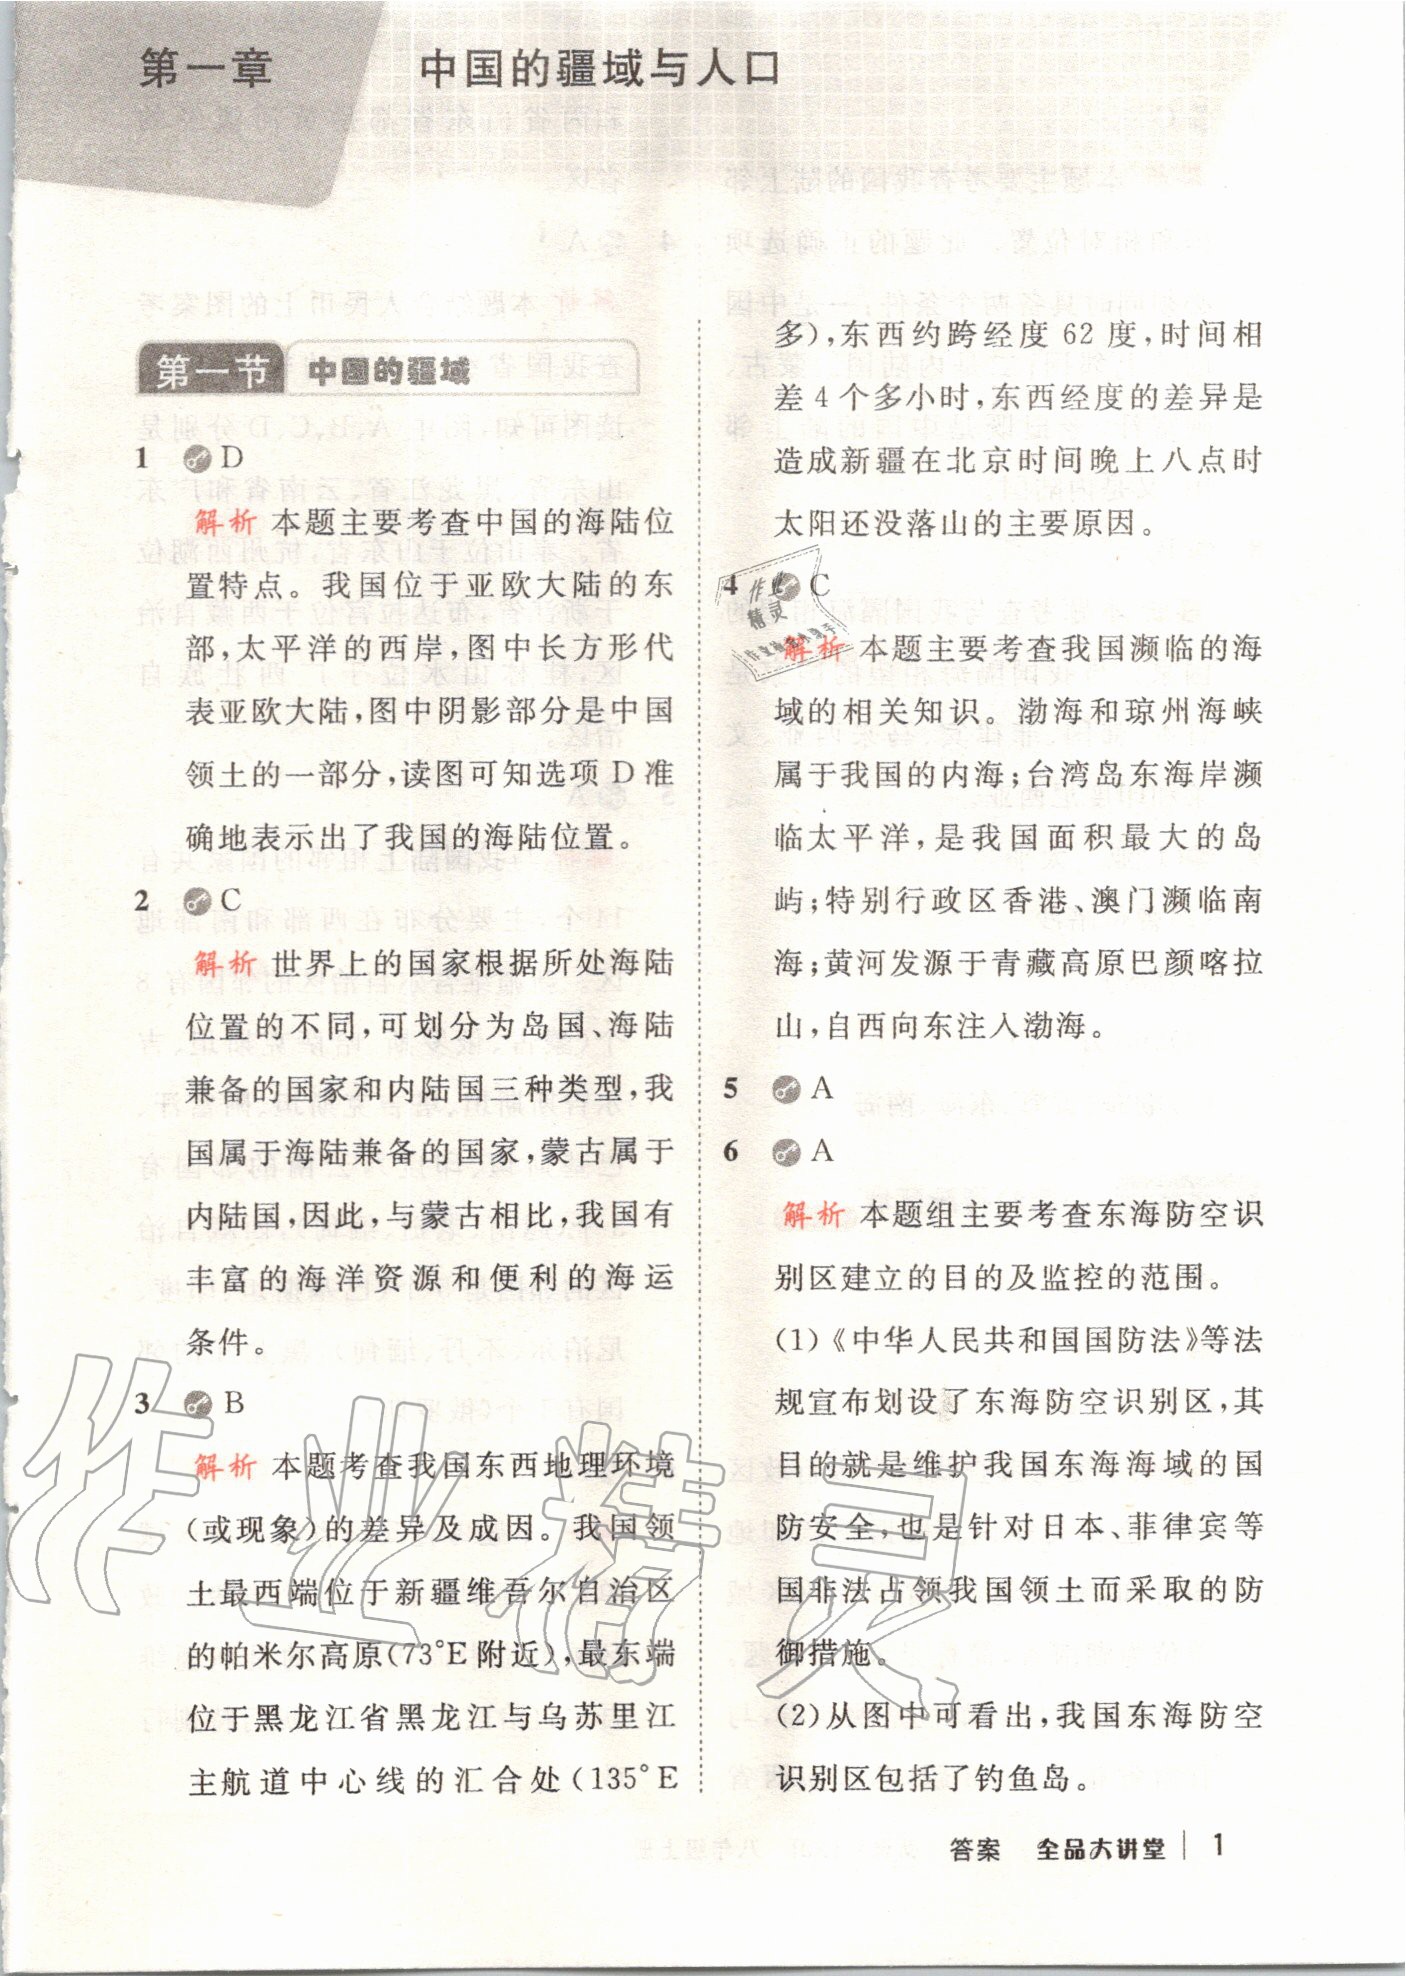 第一章 中国的疆域与人口
第一节 中国的疆域
1 D
解析 本题主要考查中国的海陆位
置特点。我国位于亚欧大陆的东
部,太平洋的西岸,图中长方形代
表亚欧大陆,图中阴影部分是中国
领土的一部分,读图可知选项D准
确地表示出了我国的海陆位置。
2 C
解析 世界上的国家根据所处海陆
位置的不同,可划分为岛国、海陆
兼备的国家和内陆国三种类型,我
国属于海陆兼备的国家,蒙古属于
内陆国,因此,与蒙古相比,我国有
丰富的海洋资源和便利的海运
条件。
3 B
解析 本题考查我国东西地理环境
(或现象)的差异及成因。我国领
土最西端位于新疆维吾尔自治区
的帕米尔高原(73°E附近),最东端
位于黑龙江省黑龙江与乌苏里江
主航道中心线的汇合处(135°E
多),东西约跨经度62度,时间相
差4个多小时,东西经度的差异是
造成新疆在北京时间晚上八点时
太阳还没落山的主要原因。
4 C
解析 本题主要考查我国濒临的海
域的相关知识。渤海和琼州海峡
属于我国的内海;台湾岛东海岸濒
临太平洋,是我国面积最大的岛
屿;特别行政区香港、澳门濒临南
海;黄河发源于青藏高原巴颜喀拉
山,自西向东注入渤海。
5 A
6 A
解析 本题组主要考查东海防空识
别区建立的目的及监控的范围。
(1)《中华人民共和国国防法》等法
规宣布划设了东海防空识别区,其
目的就是维护我国东海海域的国
防安全,也是针对日本、菲律宾等
国非法占领我国领土而采取的防
御措施。
(2)从图中可看出,我国东海防空
识别区包括了钓鱼岛。
答案 全品大讲堂 1
作业精灵
作业
精灵